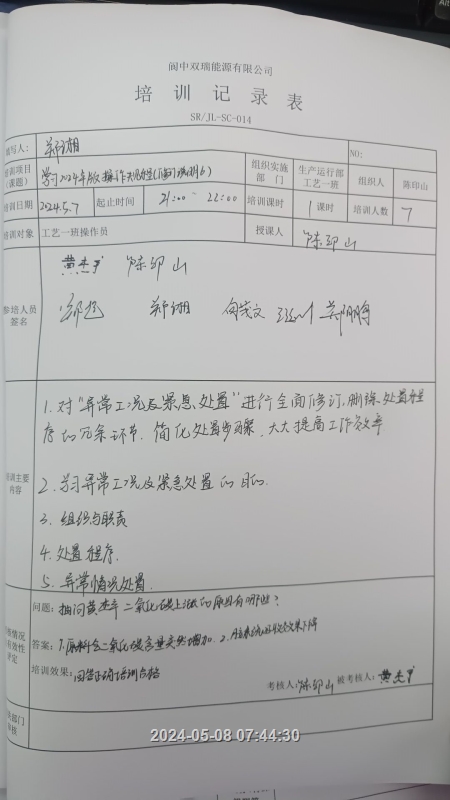 阆中双瑞能源有限公司
培训记录表
SR/JL-SC-014
填写人： 郑翊 NO:
培训项目（课题） 学习2024年版操作 组织实施部门 生产运行部工艺一班 组织人 陈印山
培训日期 2024.5.7 起止时间 21:00-22:00 培训课时 1课时 培训人数 7
培训对象 工艺一班操作员 授课人 陈印山
参培人员签名
陈印山
1.对"异常工况及紧急处置"进行全面修订,删除处置程
序的冗余环节,简化处置步骤,大大提高工作效率
培训主要内容
2.学习异常工况及紧急处置的目的.
3.组织与职责
4.处置程序.
5.异常情况处置.
问题：抽问黄 二氧化碳上涨的原因有哪些?
答案：1.原料气二氧化碳含量突然增加. 2. 吸收效果下降
培训效果：回答正确培训合格
考核人：陈印山 被考核人：
2024-05-08 07:44:30